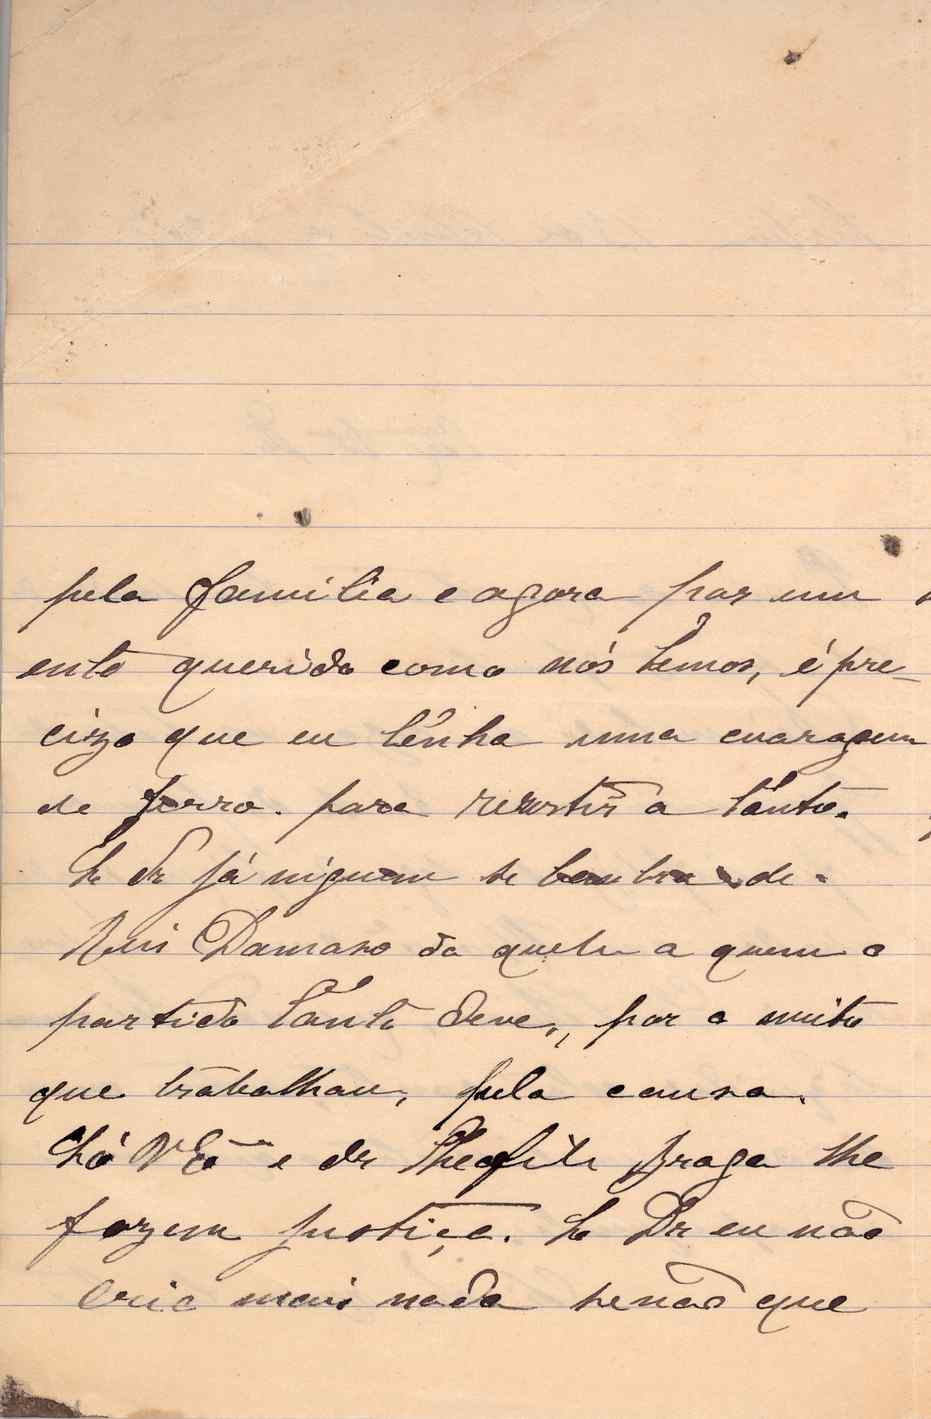 pela familia e agora por um
ente querido como nós temos, é pre-
cizo que eu tenha uma curagem
de ferro. para rezestir a tanto.
Sr Dr já niguem se lembra de
Reis Damaso da quele a quem o
partido tanto deve, por o muito
que trabalhau, pela causa.
Só V Exa e dr Theofilo Braga lhe
fazem justiça. Sr Dr eu não
mais nada senão que